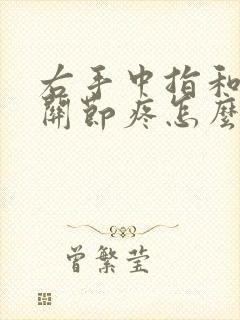 右手中指和
關節疼怎麼
曾繁莹